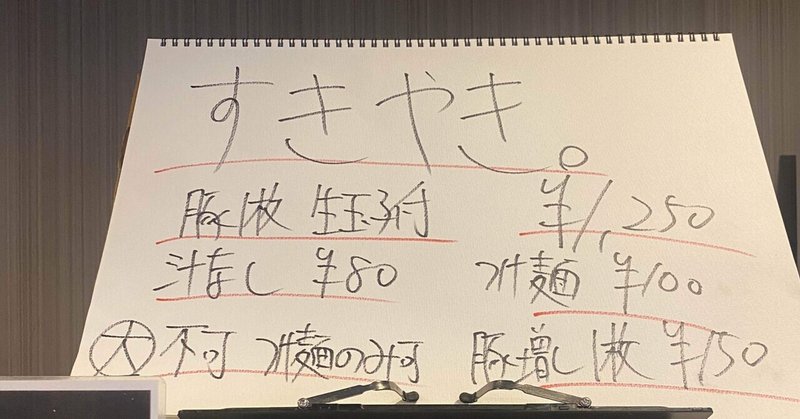 すきやき。
豚1枚 生玉子付 ¥1,250
汁なし ¥80 つけ麺 ¥100
大 不可 つけ麺のみ可 豚増し1枚 ¥150